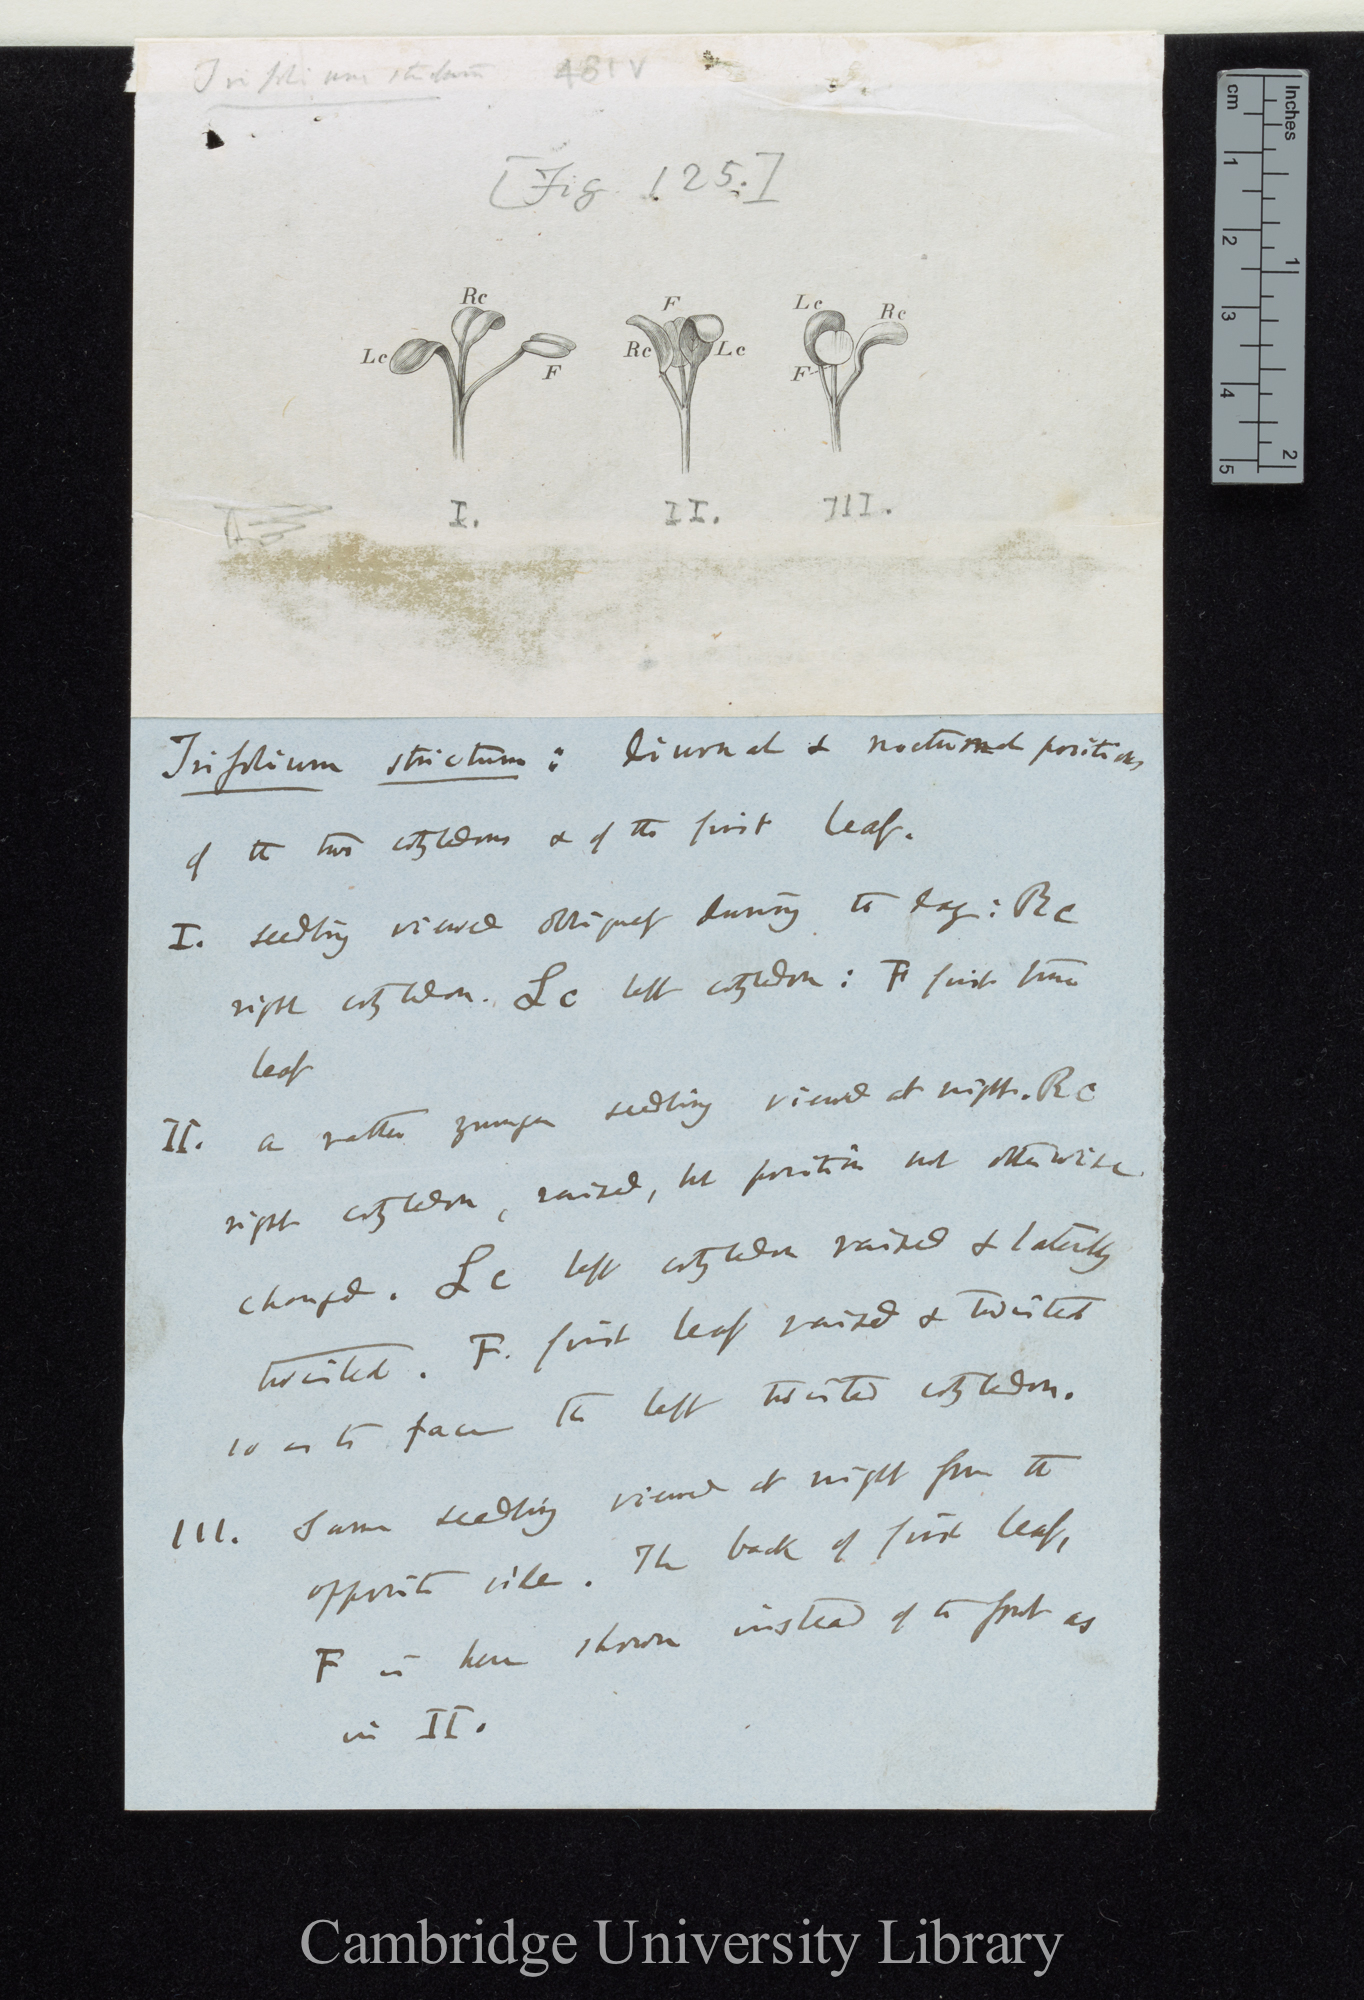 Trifolium strictum 481V
[Fig 125.]
Rc F Lc Rc
Lc F Rc Lc F
I. II. III.
Trifolium strictum: diurnal & nocturnal positions
of the two cotyledons & of the first leaf.
I. seedling viewed obliquely during the day: Rc
right cotyledon. Lc left cotyledon: F first true
leaf
II. a rather younger seedling viewed at night. Rc
right cotyledon, raised, but position not otherwise
changed. Lc left cotyledon raised & laterally
twisted. F. first leaf raised & twisted
so as to face the left twisted cotyledon.
III. Same seedling viewed at night from the
opposite side. The back of first leaf,
F is here shown instead of the front as
in II.
Inches
cm
1 2 3 4 5
1 2
Cambridge University Library